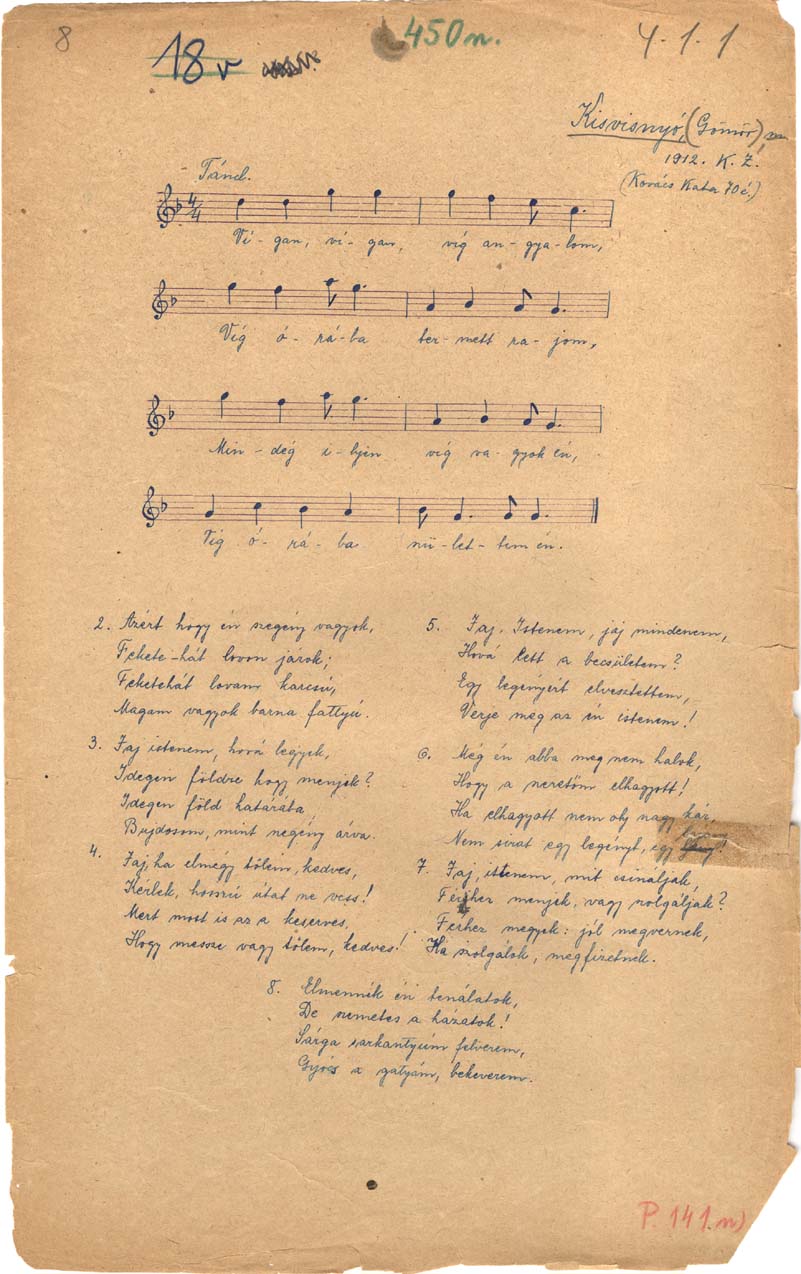 8
18 v
450 n.
4. 1. 1
Kisvisnyó, (Gömör) m
1912. K. Z.
(Kovács Kata 70 é.)
Tánc.
4/4
Vi - gan, vi - gan, víg an - gya - lom,
Víg ó - rá - ba ter - mett ra - jom,
Min - dég i - lyen víg va - gyok én,
Víg ó - rá - ba nü - let - tem én.
2. Azért hogy én szegény vagyok,
Fekete-hát lovon járok;
Feketehát lovam karcsú,
Magam vagyok barna fattyú.
3. Jaj istenem, hová legyek,
Idegen földre hogy menjek?
Idegen föld határáta
Bujdosom, mint szegény árva.
4. Jaj, ha elmégy tőlem, kedves,
Kérlek, hosszú útat ne vess!
Mert most is az a keserves,
Hogy messze vagy tőlem, kedves!
5. Jaj, Istenem, jáj mindenem,
Hová lett a becsületem?
Egy legényért elvesztettem,
Verje meg az én istenem!
6. Még én abba meg nem halok,
Hogy a szeretőm elhagyott!
Ha elhagyott nem oly nagy kár,
Nem sirat egy legényt, egy !
7. Jaj, istenem, mit csináljak,
Férhez menjek, vagy szolgáljak?
Ferhez megyek: jól megvernek,
Ha szolgálok, megfizetnek.
8. Elmennék én tenálatok,
De nemetes a házatok!
Sárga sarkantyúm felverem,
Gyócs a gatyám, bekeverem.
P. 141. n)